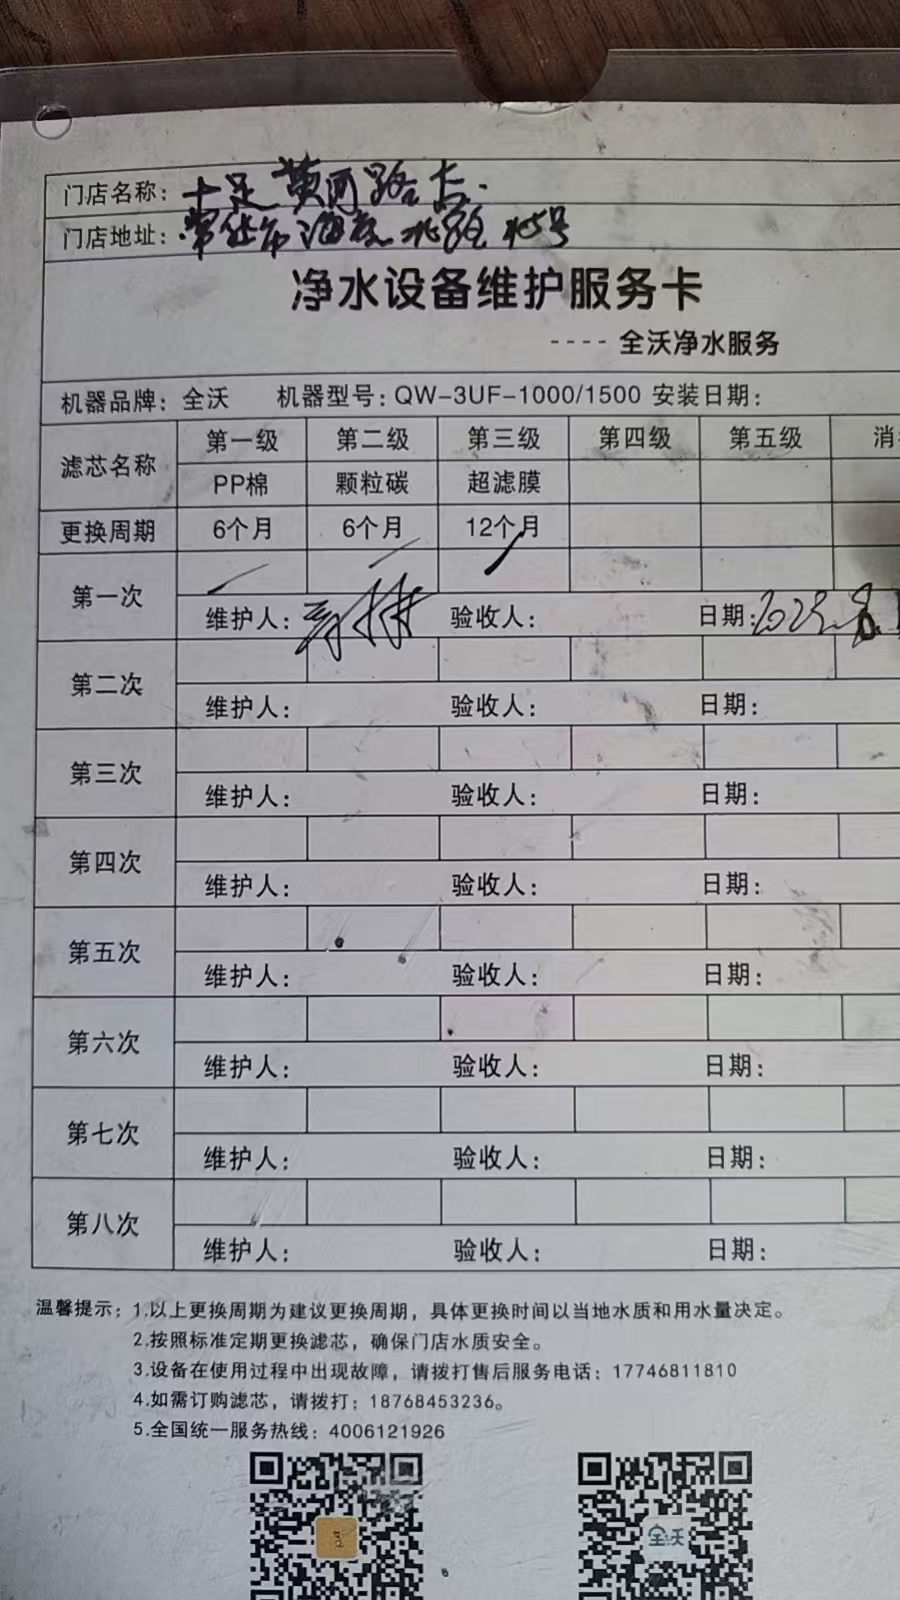 门店名称：十足黄河路店.
门店地址：常熟市海虞北路45号
净水设备维护服务卡
----全沃净水服务
机器品牌：全沃 机器型号：QW-3UF-1000/1500 安装日期：
滤芯名称 第一级 第二级 第三级 第四级 第五级
PP棉 颗粒碳 超滤膜
更换周期 6个月 6个月 12个月
第一次
维护人： 验收人： 日期：
第二次
维护人： 验收人： 日期：
第三次
维护人： 验收人： 日期：
第四次
维护人： 验收人： 日期：
第五次
维护人： 验收人： 日期：
第六次
维护人： 验收人： 日期：
第七次
维护人： 验收人： 日期：
第八次
维护人： 验收人： 日期：
温馨提示：1.以上更换周期为建议更换周期，具体更换时间以当地水质和用水量决定。
2.按照标准定期更换滤芯，确保门店水质安全。
3.设备在使用过程中出现故障，请拨打售后服务电话：17746811810
4.如需订购滤芯，请拨打：18768453236。
5.全国统一服务热线：4006121926
全沃